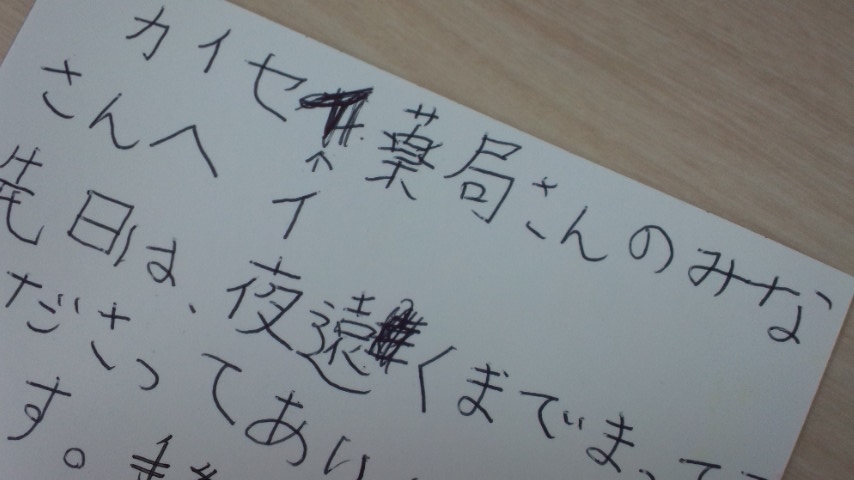 カイセイ薬局さんのみな
さんへ
先日は、夜遠くまでまって
ださってあり
す。